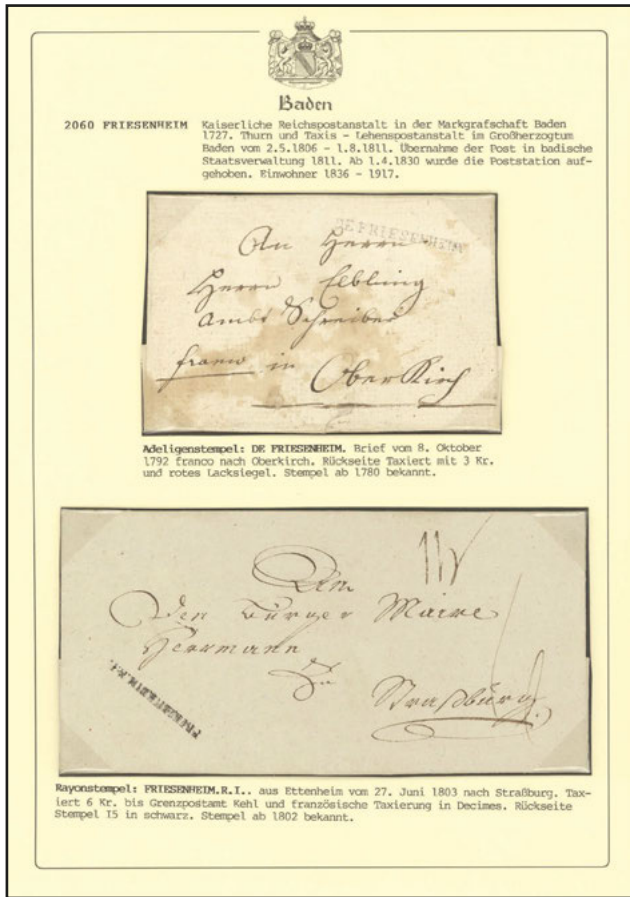 Baden
2060 FRIESENHEIM Kaiserliche Reichspostanstalt in der Markgrafschaft Baden
1727. Thurn und Taxis - Lehenspostanstalt im Großherzogtum
Baden vom 2.5.1806 - 1.8.1811. Übernahme der Post in badische
Staatsverwaltung 1811. Ab 1.4.1830 wurde die Poststation auf-
gehoben. Einwohner 1836 - 1917.
DE FRIESENHEIM
An Herrn
Herrn Elbling
Ambt Schreiber
franco in OberKirch
Adeligenstempel: DE FRIESENHEIM. Brief vom 8. Oktober
1792 franco nach Oberkirch. Rückseite Taxiert mit 3 Kr.
und rotes Lacksiegel. Stempel ab 1780 bekannt.
Dem
Den Bürger Maire
Herrmann
Zu
Straßburg.
FRIESENHEIM.R.I.
Rayonstempel: FRIESENHEIM.R.I.. aus Ettenheim vom 27. Juni 1803 nach Straßburg. Tax-
iert 6 Kr. bis Grenzpostamt Kehl und französische Taxierung in Decimes. Rückseite
Stempel 15 in schwarz. Stempel ab 1802 bekannt.